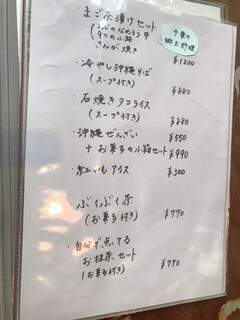 ・まご茶漬けセット
あじのなめろう丼
9つの小鉢
さんが焼き
千葉の
郷土料理
¥1200
・冷やし沖縄そば
(スープ付き)
¥880
・石焼きタコライス
(スープ付き)
¥880
・沖縄ぜんざい ¥550
+お菓子の小箱セット ¥990
・紅いもアイス ¥300
・ぶくぶく茶
(お菓子付き) ¥770
・自分で点てる
お抹茶セット
(お菓子付き) ¥770